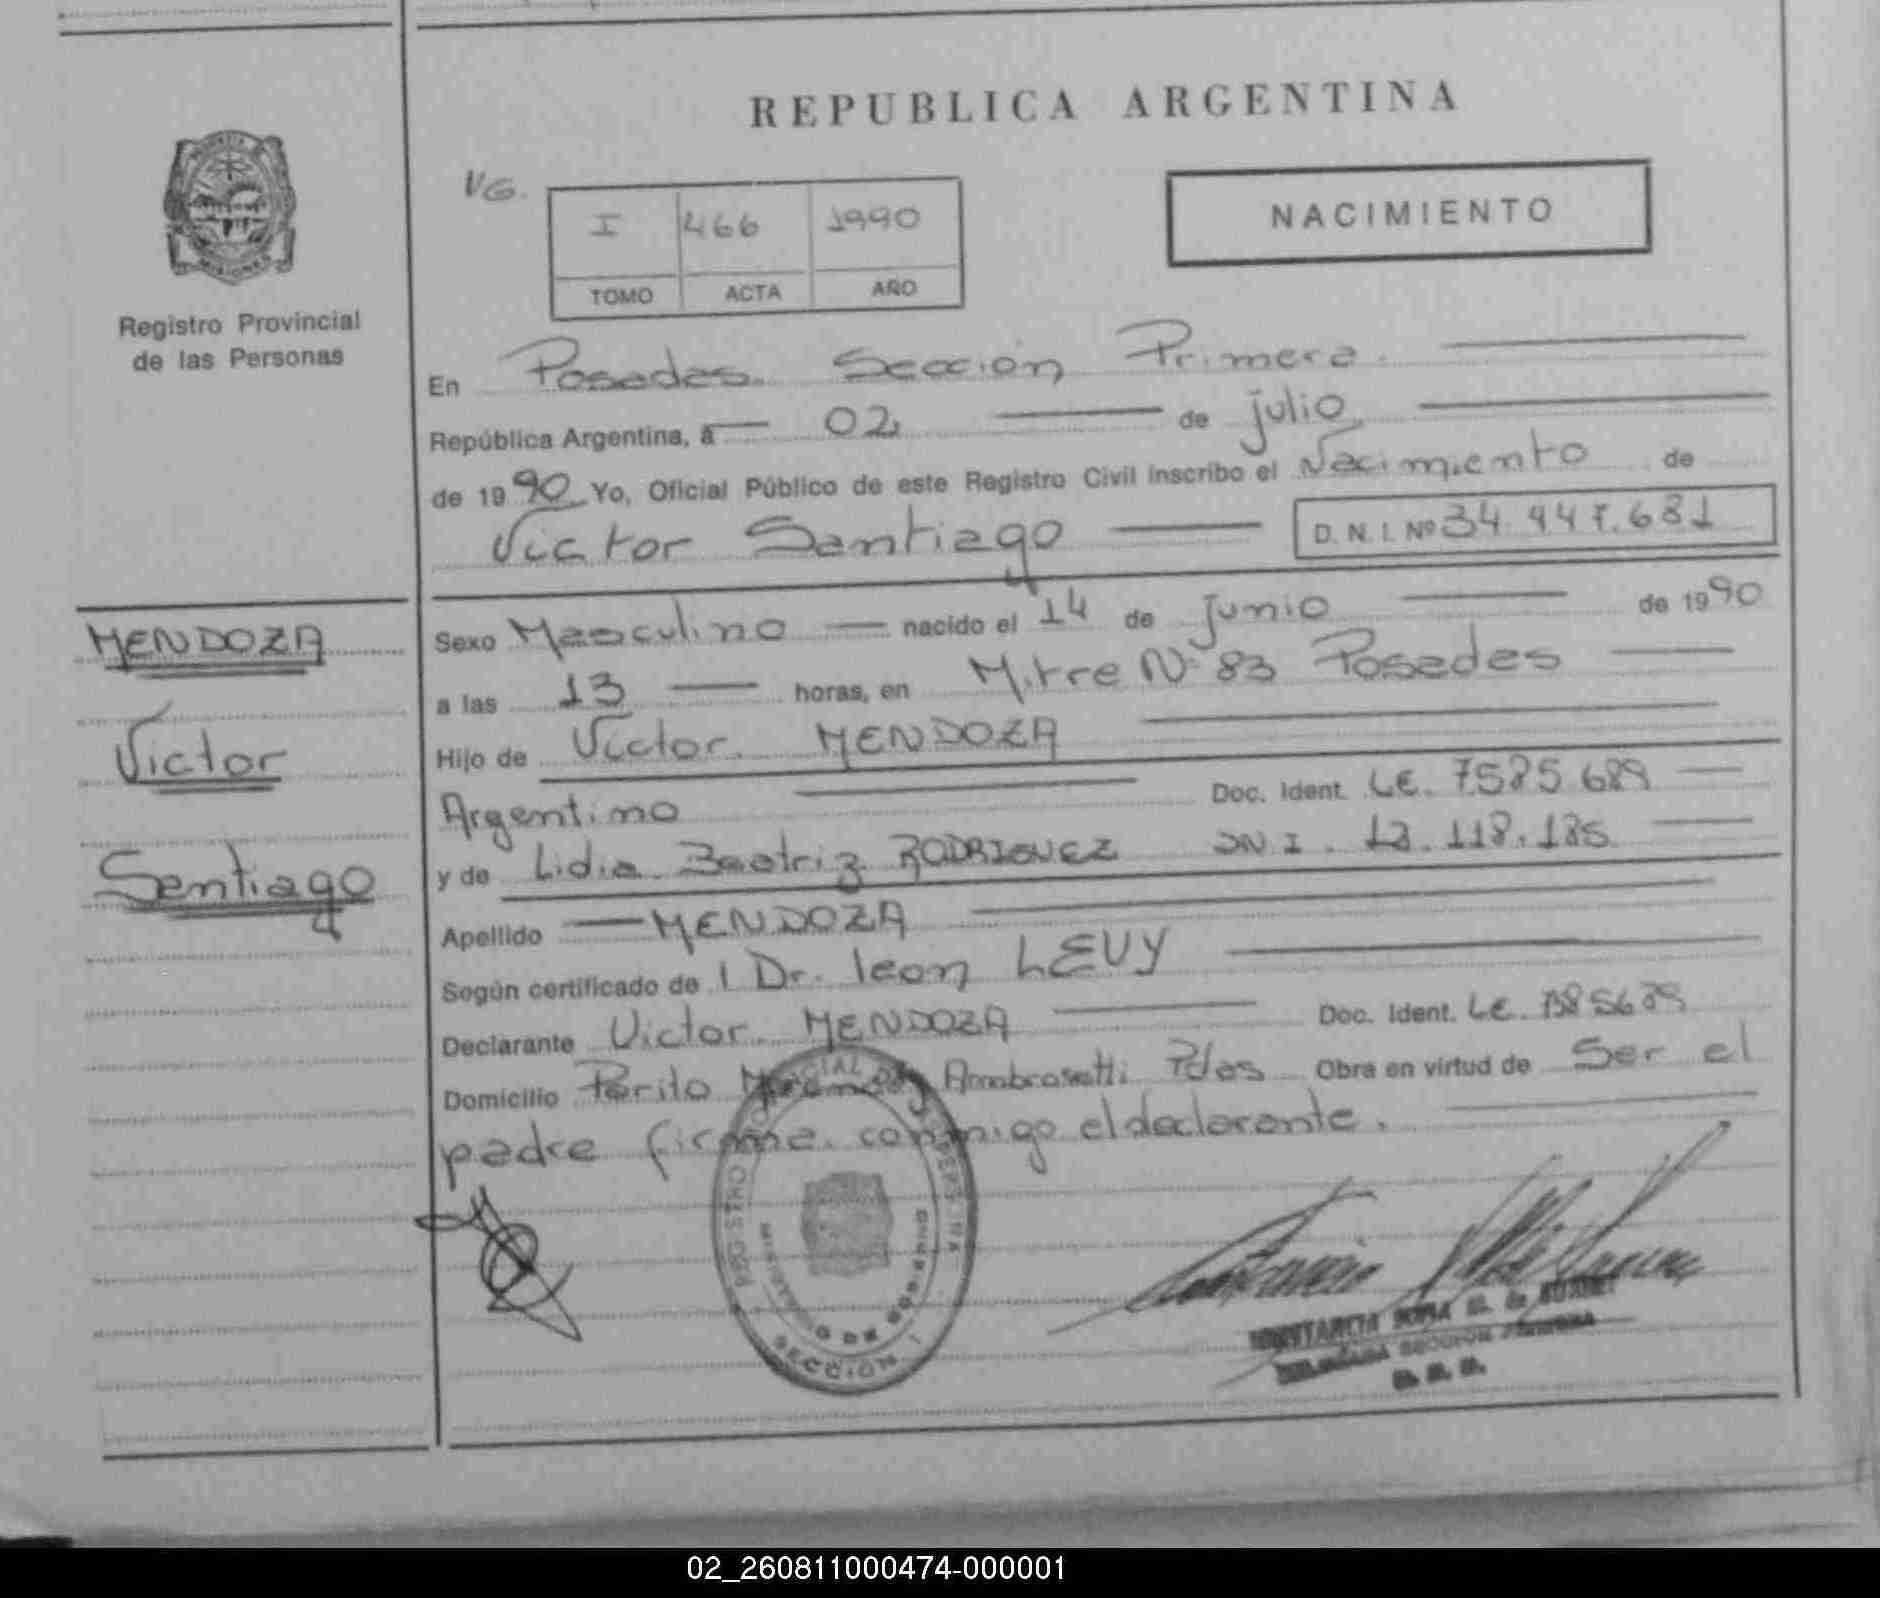 REPUBLICA ARGENTINA
VG.
I 466 1990
TOMO ACTA AÑO
NACIMIENTO
MISIONES
Registro Provincial
de las Personas
En Posadas. Sección Primera.
República Argentina, a 02 de julio
de 1990 Yo, Oficial Público de este Registro Civil inscribo el Nacimiento de
Victor Santiago D. N. I. Nº 34.447.681
MENDOZA
Victor
Santiago
Sexo Masculino nacido el 14 de junio de 1990
a las 13 horas, en Mitre Nº 83 Posadas
Hijo de Victor MENDOZA
Argentino Doc. Ident. LE. 7585689
y de Lidia Beatriz RODRIGUEZ DN I. 18.118.185
Apellido MENDOZA
Según certificado de l Dr. leon LEVY
Declarante Victor MENDOZA Doc. Ident. LE.
Domicilio Perito Moreno Ambrosetti Pdas Obra en virtud de Ser el
padre firma conmigo el declarante.
SECCION 1
02_260811000474-000001